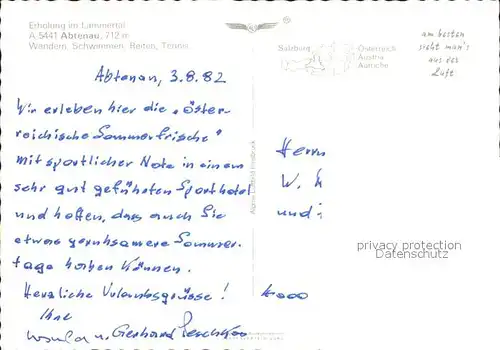 Erholung im Lammertal
A-5441 Abtenau, 712 m
Wandern, Schwimmen, Reiten, Tennis
®
Salzburg
Österreich
Austria
Autriche
am besten
sieht man's
aus der
Luft
Abtenau, 3.8.82
Wir erleben hier die „Öster-
reichische Sommerfrische"
mit sportlicher Note in einem
sehr gut geführten Sporthotel
und hoffen, dass auch Sie
etwas geruhsamere Sommer-
tage haben können.
Herzliche Urlaubsgrüsse!
Ihre
Ursula u. Gerhard
Herrn
W.
und
4000
privacy protection
Datenschutz